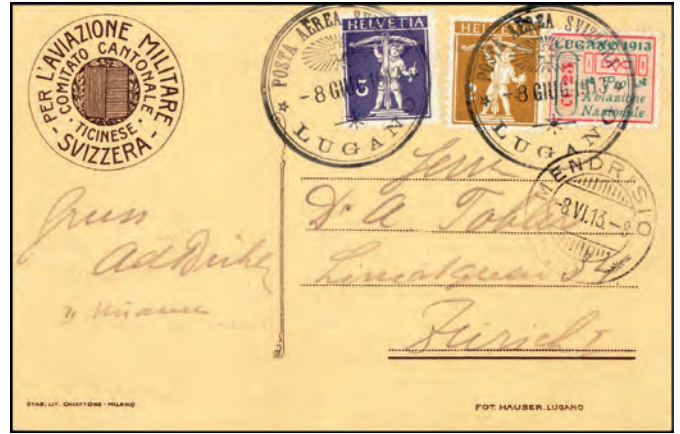 PER L'AVIAZIONE MILITARE
COMITATO CANTONALE
TICINESE
- SVIZZERA -
POSTA AEREA
- 8 GIUG
LUGANO
HELVETIA
3
HELVE
2
POSTA AEREA SVIZZERA
- 8 GIUG 1913
LUGANO
LUGANO 1913
CENT. 25
Pro
Aviazione
Nazionale
MENDRISIO
-8.VI.13-
Gruss
Herrn
Dr A
Limatquai 34
Zürich
STAB. LIT. CHIATTONE - MILANO
FOT. HAUSER. LUGANO